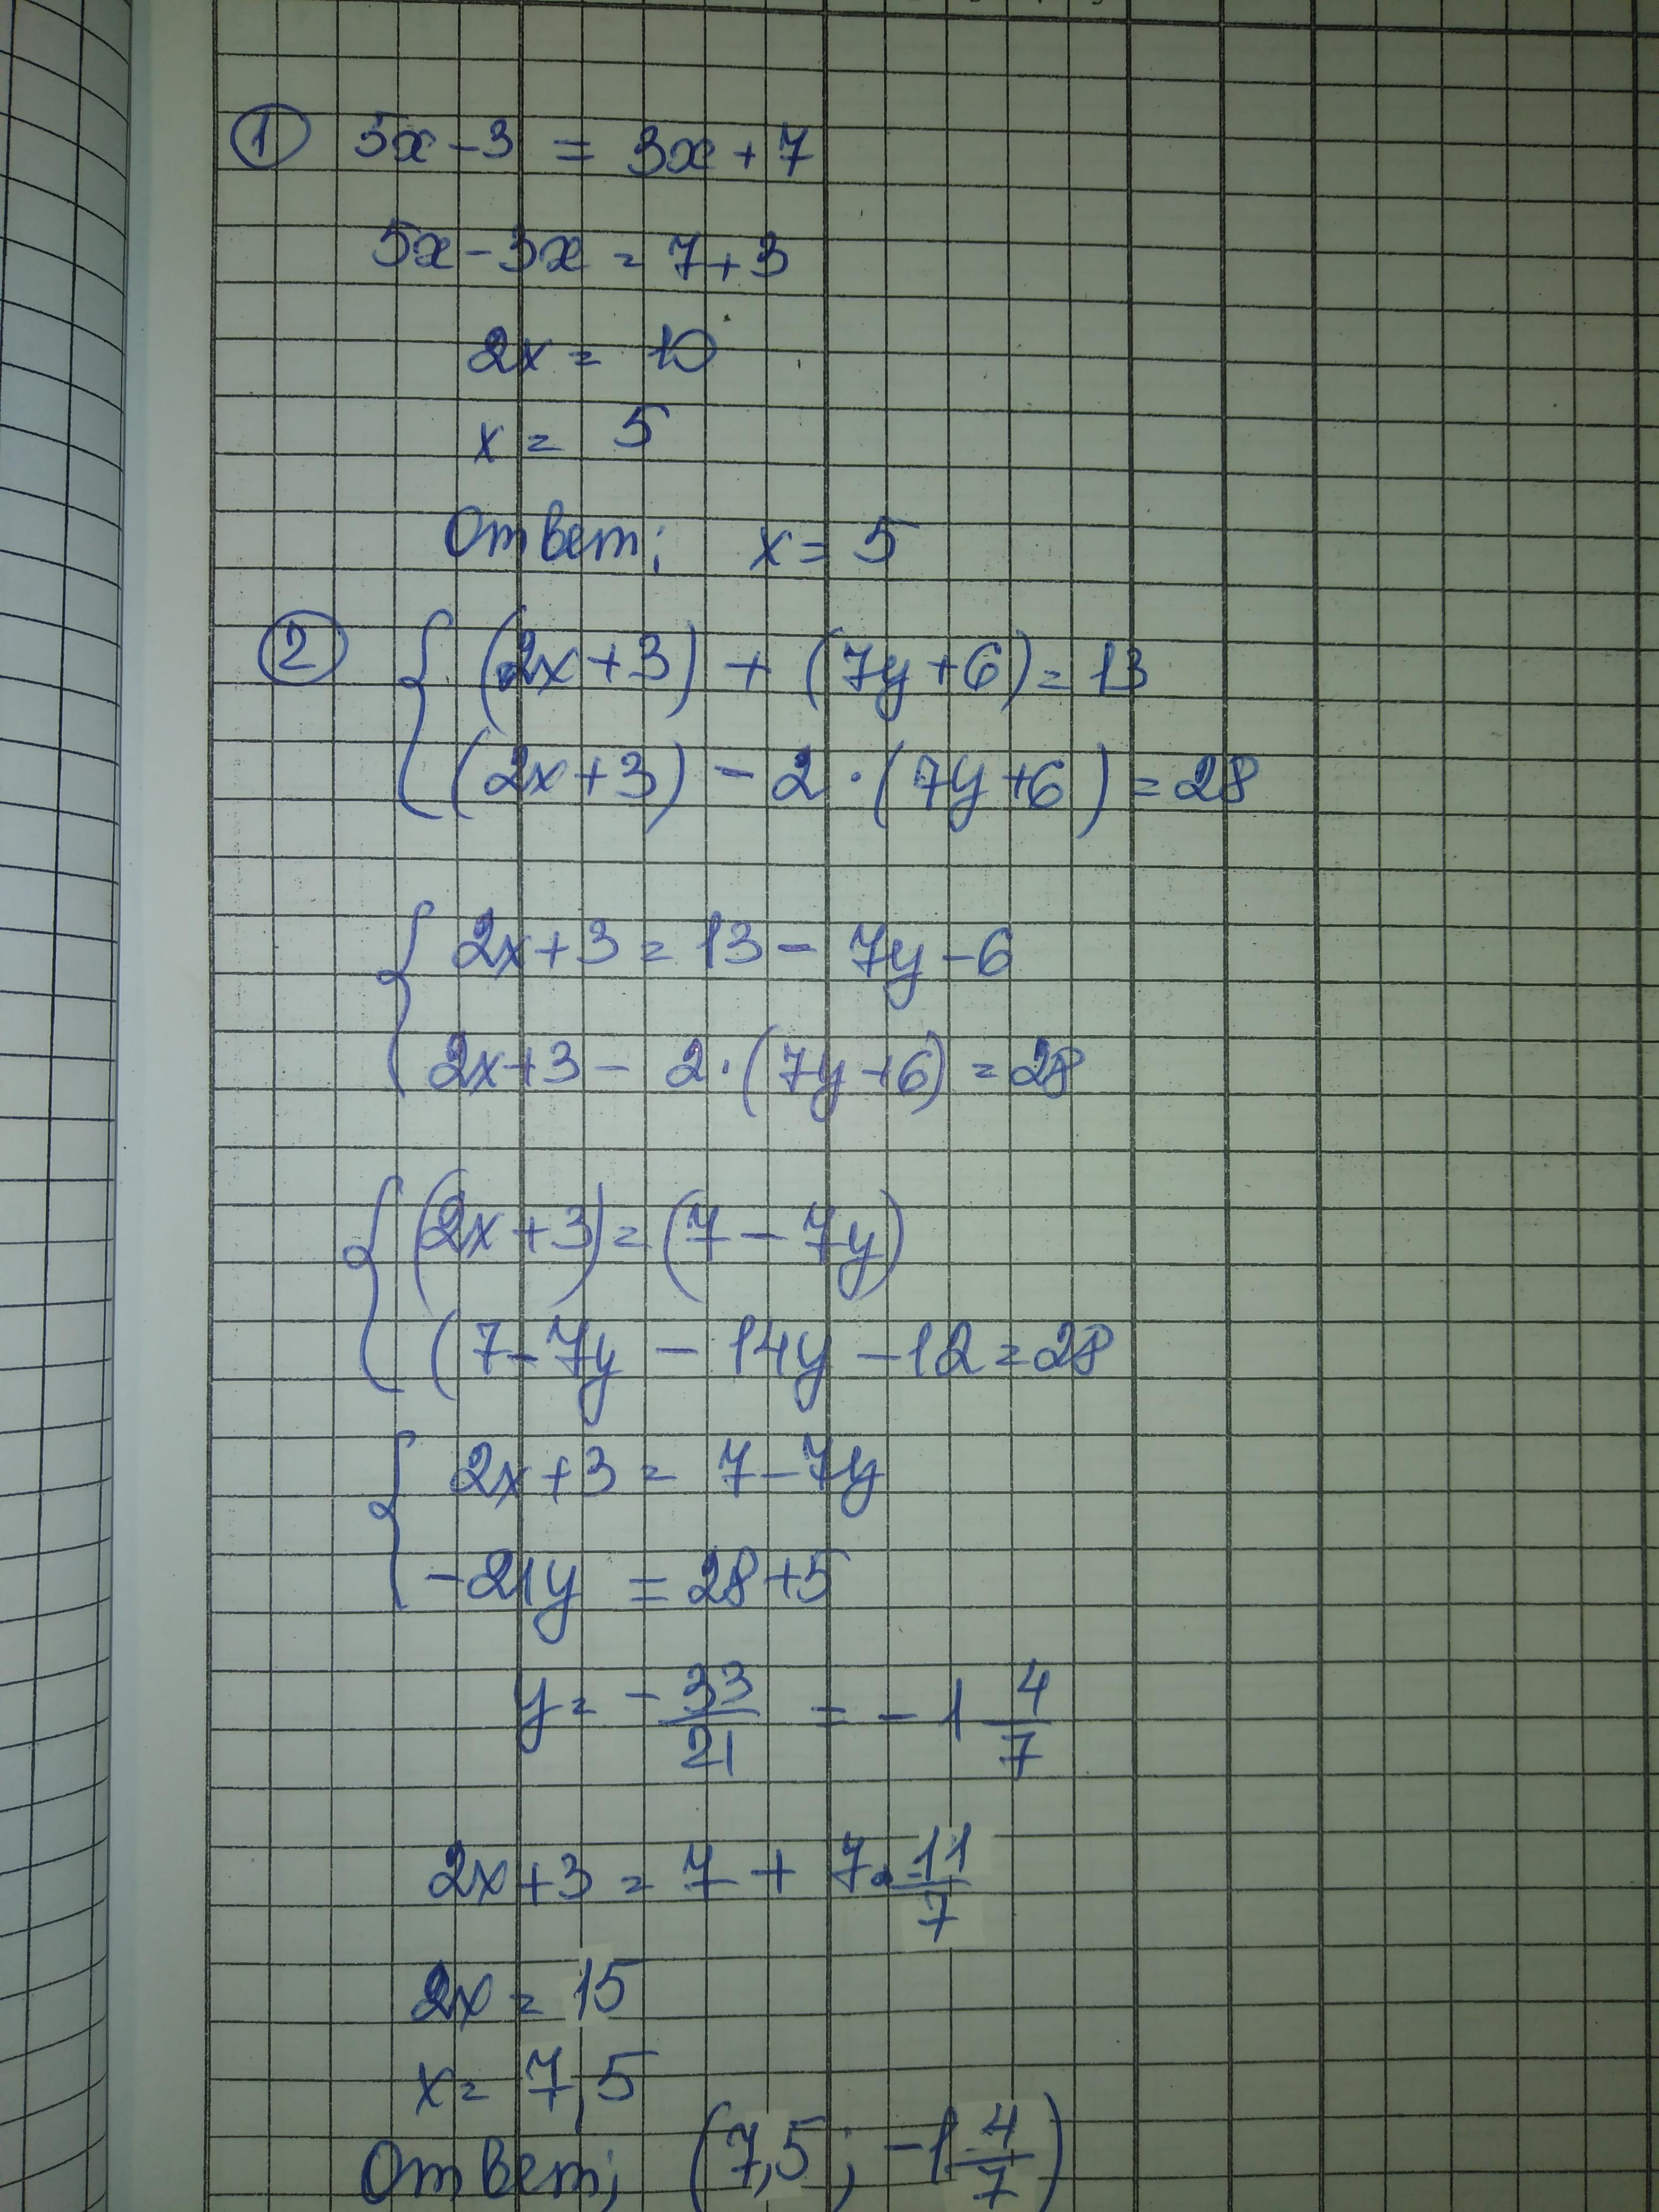 ① 5x - 3 = 3x + 7
5x - 3x = 7 + 3
2x = 10
x = 5
Ответ: x = 5
② { (2x + 3) + (7y + 6) = 13
(2x + 3) - 2 · (7y + 6) = 28
{ 2x + 3 = 13 - 7y - 6
2x + 3 - 2 · (7y + 6) = 28
{ (2x + 3) = (7 - 7y)
(7 - 7y - 14y - 12 = 28
{ 2x + 3 = 7 - 7y
-21y = 28 + 5
y = - 33/21 = - 1 4/7
2x + 3 = 7 + 7 · 11/7
2x = 15
x = 7,5
Ответ: (7,5 ; -1 4/7)